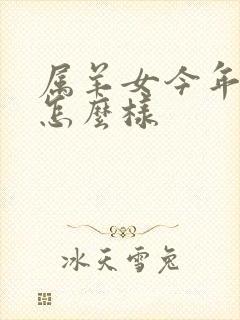 属羊女今年
怎麼样
冰天雪兔